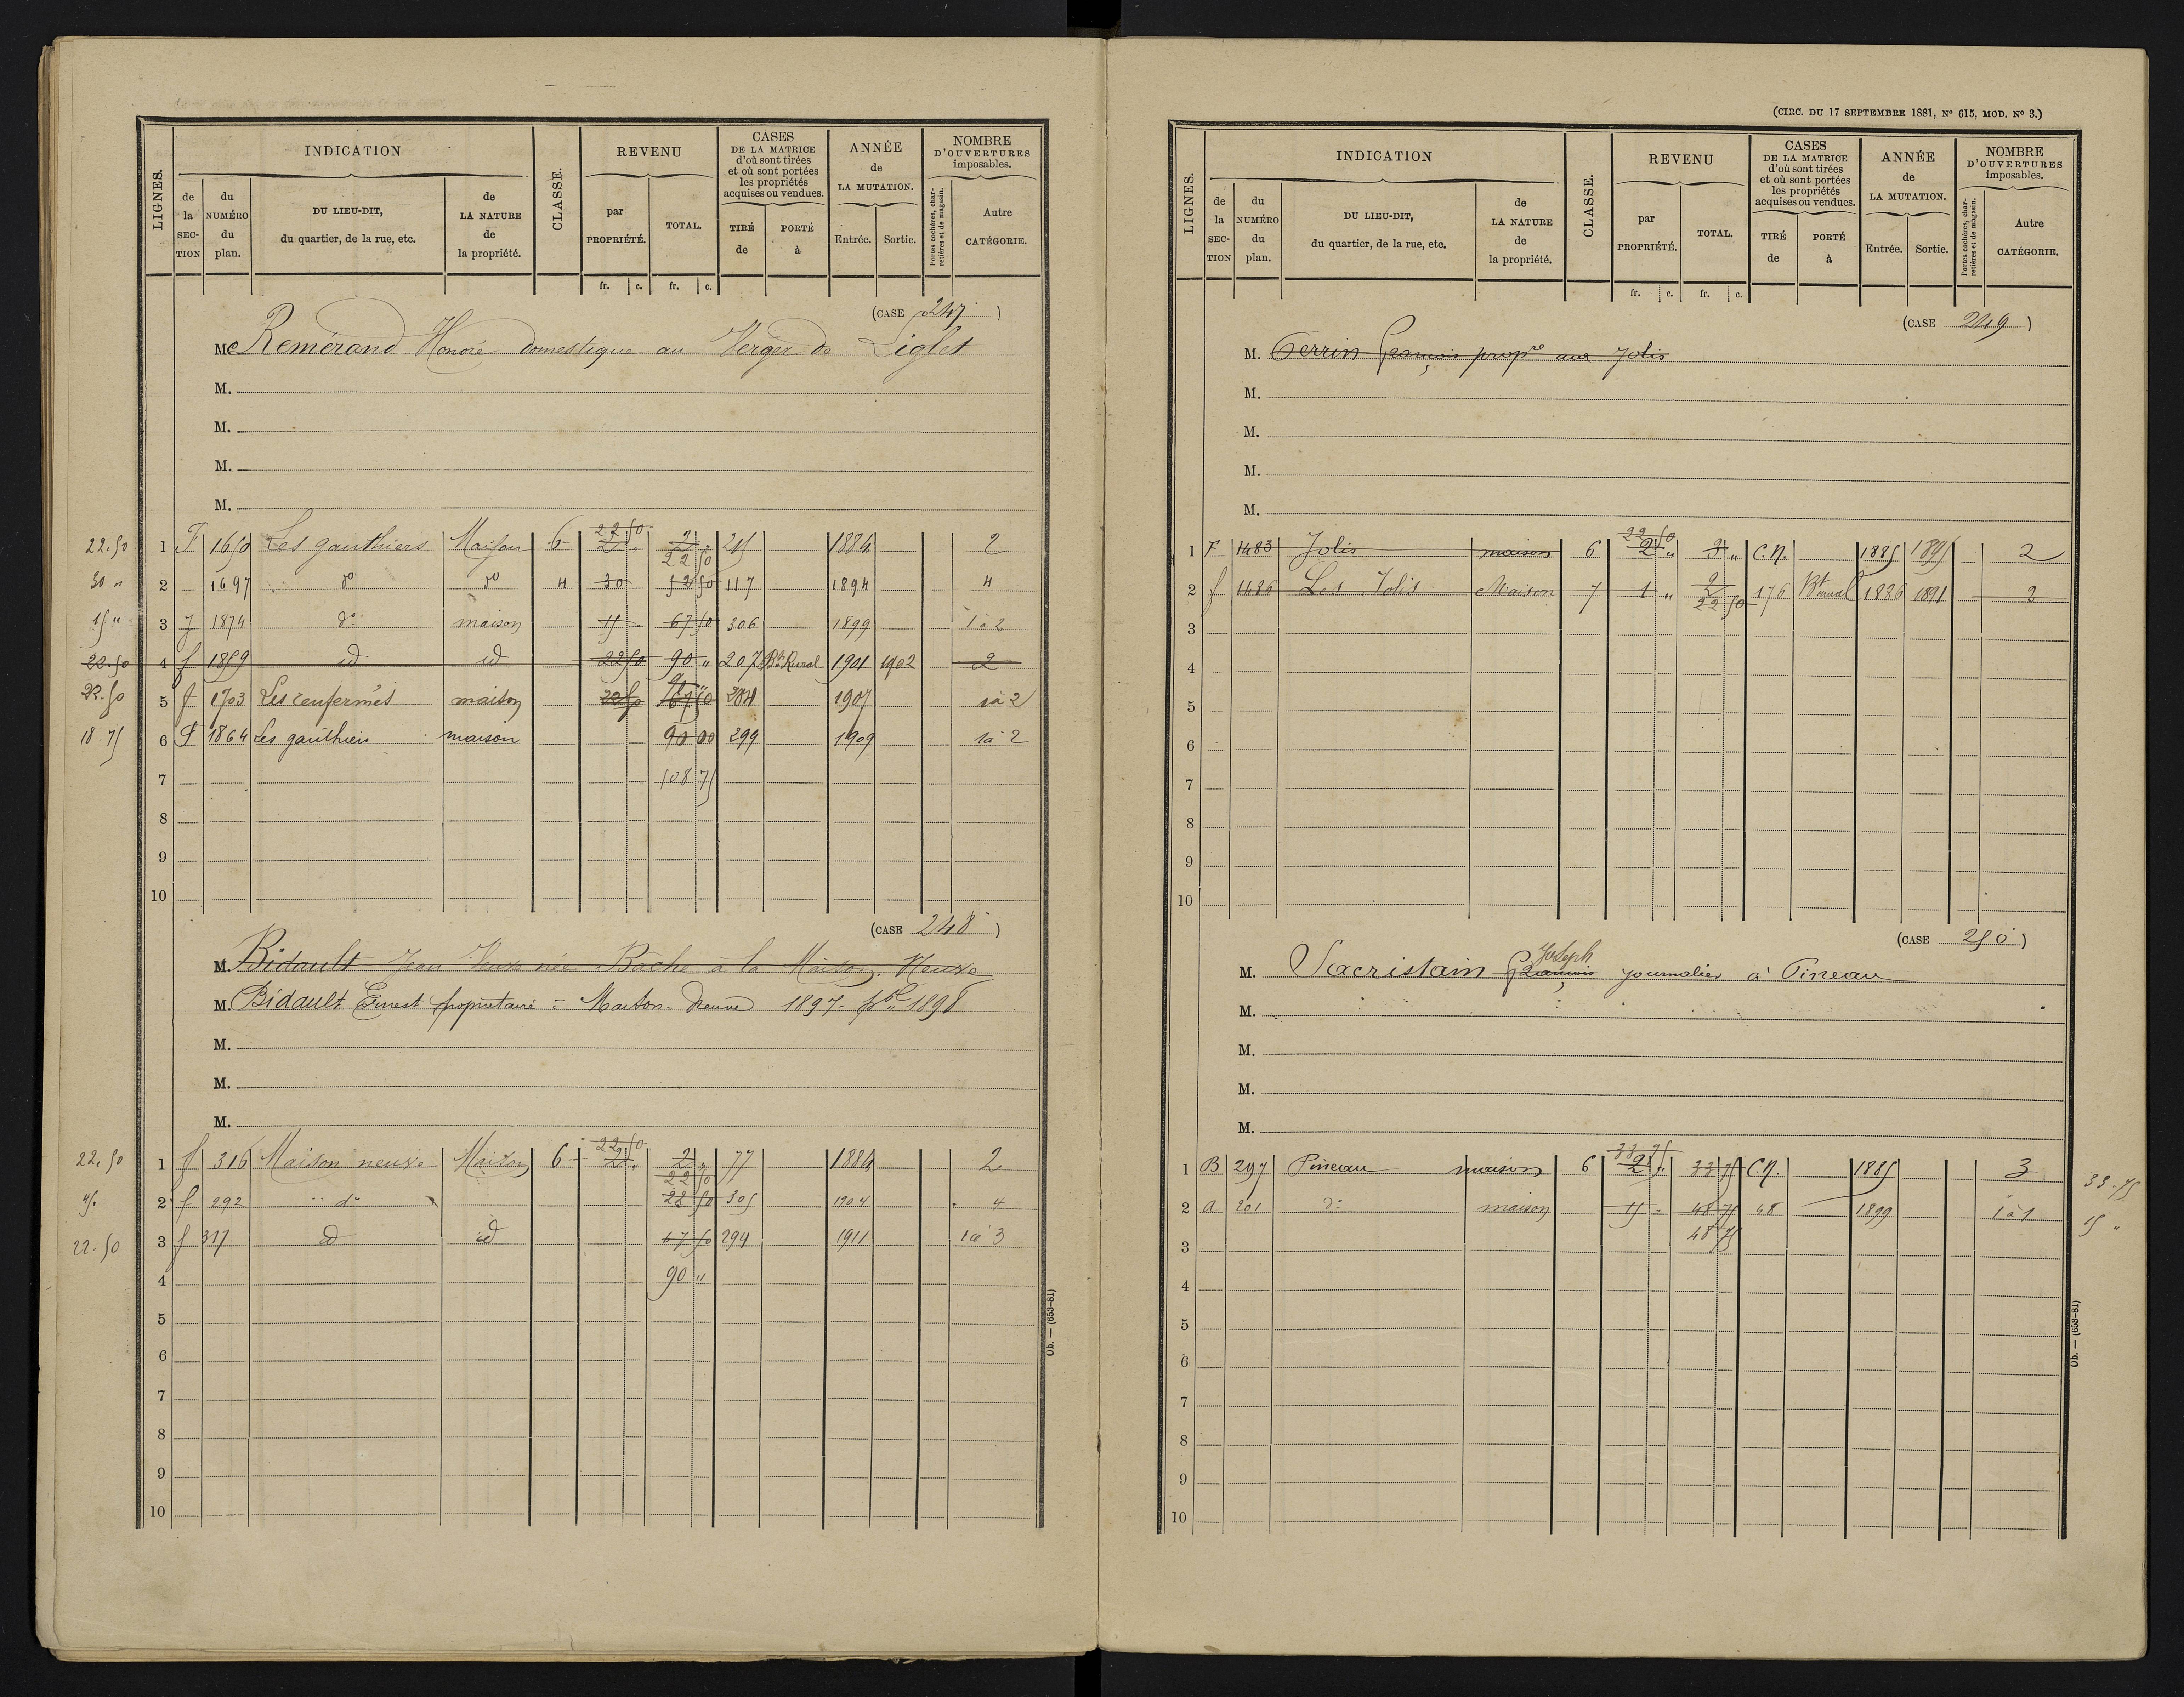 LIGNES.
INDICATION
CLASSE.
REVENU
CASES
DE LA MATRICE
d'où sont tirées
et où sont portées
les propriétés
acquises ou vendues.
ANNÉE
de
LA MUTATION.
NOMBRE
D'OUVERTURES
imposables.
de la SECTION
du NUMÉRO du plan.
DU LIEU-DIT,
du quartier, de la rue, etc.
de LA NATURE de la propriété.
par PROPRIÉTÉ.
TOTAL.
TIRÉ de
PORTÉ à
Entrée.
Sortie.
Portes cochères, charretières et de magasin.
Autre CATÉGORIE.
fr. c. fr. c.
(CASE 247)
M. Remérand Honoré domestique au Verger de Liglet
M.
M.
M.
M.
22.50 1 F 1650 Les gauthiers Maison 6 22 50 2 " 2 " 22 50 215 1884 2
30 " 2 1697 do do 4 30 52 50 117 1894 4
15 " 3 f 1874 do maison 15 67 50 306 1899 1 à 2
22.50 4 f 1859 id id 22 50 90 " 207 Bt Rural 1901 1902 2
22.50 5 f 1703 Les renfermés maison 22 50 67 50 1907 1 à 2
18.75 6 F 1864 Les gauthiers maison 90 00 299 1909 1 à 2
7 108 75
8
9
10
(CASE 248)
M. Bidault Jean Veuve née Bache à la Maison Neuve
M. Bidault Ernest propriétaire à Maison-Neuve 1897 - pr 1898
M.
M.
M.
22.50 1 f 316 Maison neuve Maison 6 22 50 2 " 2 " 22 50 77 1884 2
45. 2 f 292 do 22 50 305 1904 4
22.50 3 f 317 id id 67 50 294 1911 1 à 3
4 90 "
5
6
7
8
9
10
Ob. — (653-81)
(CIRC. DU 17 SEPTEMBRE 1881, No 615, MOD. No 3.)
LIGNES.
INDICATION
CLASSE.
REVENU
CASES
DE LA MATRICE
d'où sont tirées
et où sont portées
les propriétés
acquises ou vendues.
ANNÉE
de
LA MUTATION.
NOMBRE
D'OUVERTURES
imposables.
de la SECTION
du NUMÉRO du plan.
DU LIEU-DIT,
du quartier, de la rue, etc.
de LA NATURE de la propriété.
par PROPRIÉTÉ.
TOTAL.
TIRÉ de
PORTÉ à
Entrée.
Sortie.
Portes cochères, charretières et de magasin.
Autre CATÉGORIE.
fr. c. fr. c.
(CASE 249)
M. Perrin François propre aux Jolis
M.
M.
M.
M.
1 F 1483 Jolis maison 6 22 50 2 " 2 " C.N. 1885 1895 2
2 f 1486 Les Jolis Maison 7 1 " 2 22 50 176 Bt rural 1886 1891 2
3
4
5
6
7
8
9
10
(CASE 250)
Joseph
M. Sacristain François journalier à Pineau
M.
M.
M.
M.
1 B 297 Pineau maison 6 33 75 2 " 33 75 C.N. 1885 3 33-75
2 a 201 do maison 15 - 48 75 48 1899 1 à 1 15 "
3 48 75
4
5
6
7
8
9
10
Ob. — (653-81)